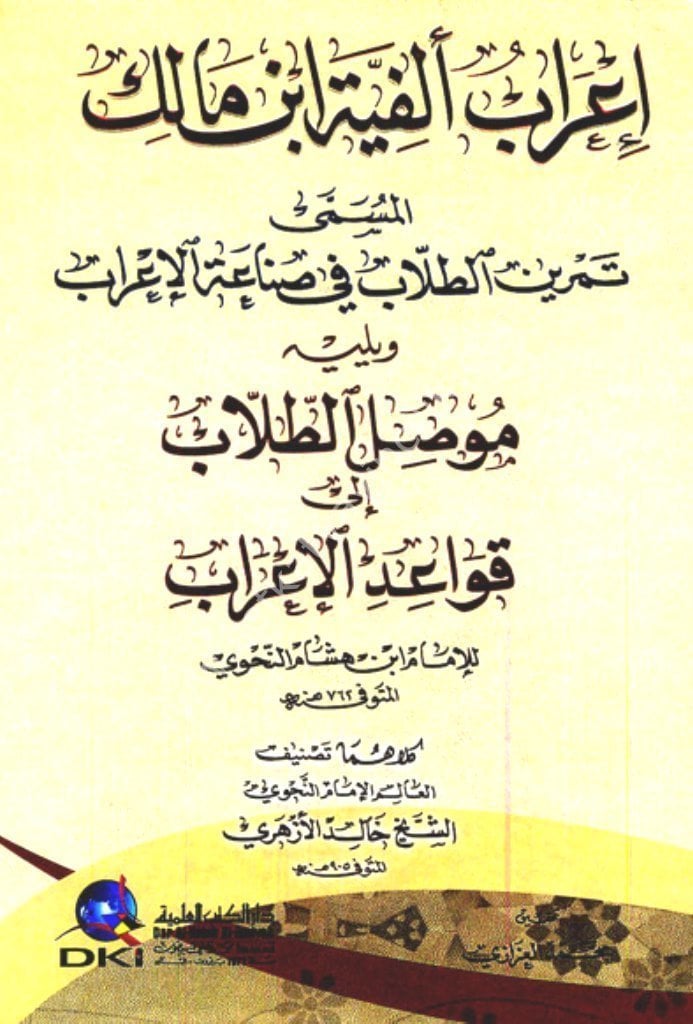 إِعْرَابُ أَلفِيَّة ابْن مَالِك
المُسَمَّى
تَمْرين الطلّاب في صناعَة الإعْراب
ويليه
مُوصِل الطّلّاب
إلى
قَوَاعِدِ الإعْرَابِ
للإمَام ابْن هشام النّحوي
المتوفى ٧٦٢ هـ
كلاهُمَا تَصْنيف
العَالِم الإمام النَّحوي
الشّيخ خَالِد الأزهَري
المتوفى ٩٠٥ هـ
دار الكتب العلمية
Dar Al-Kotob Al-ilmiyah
DKi